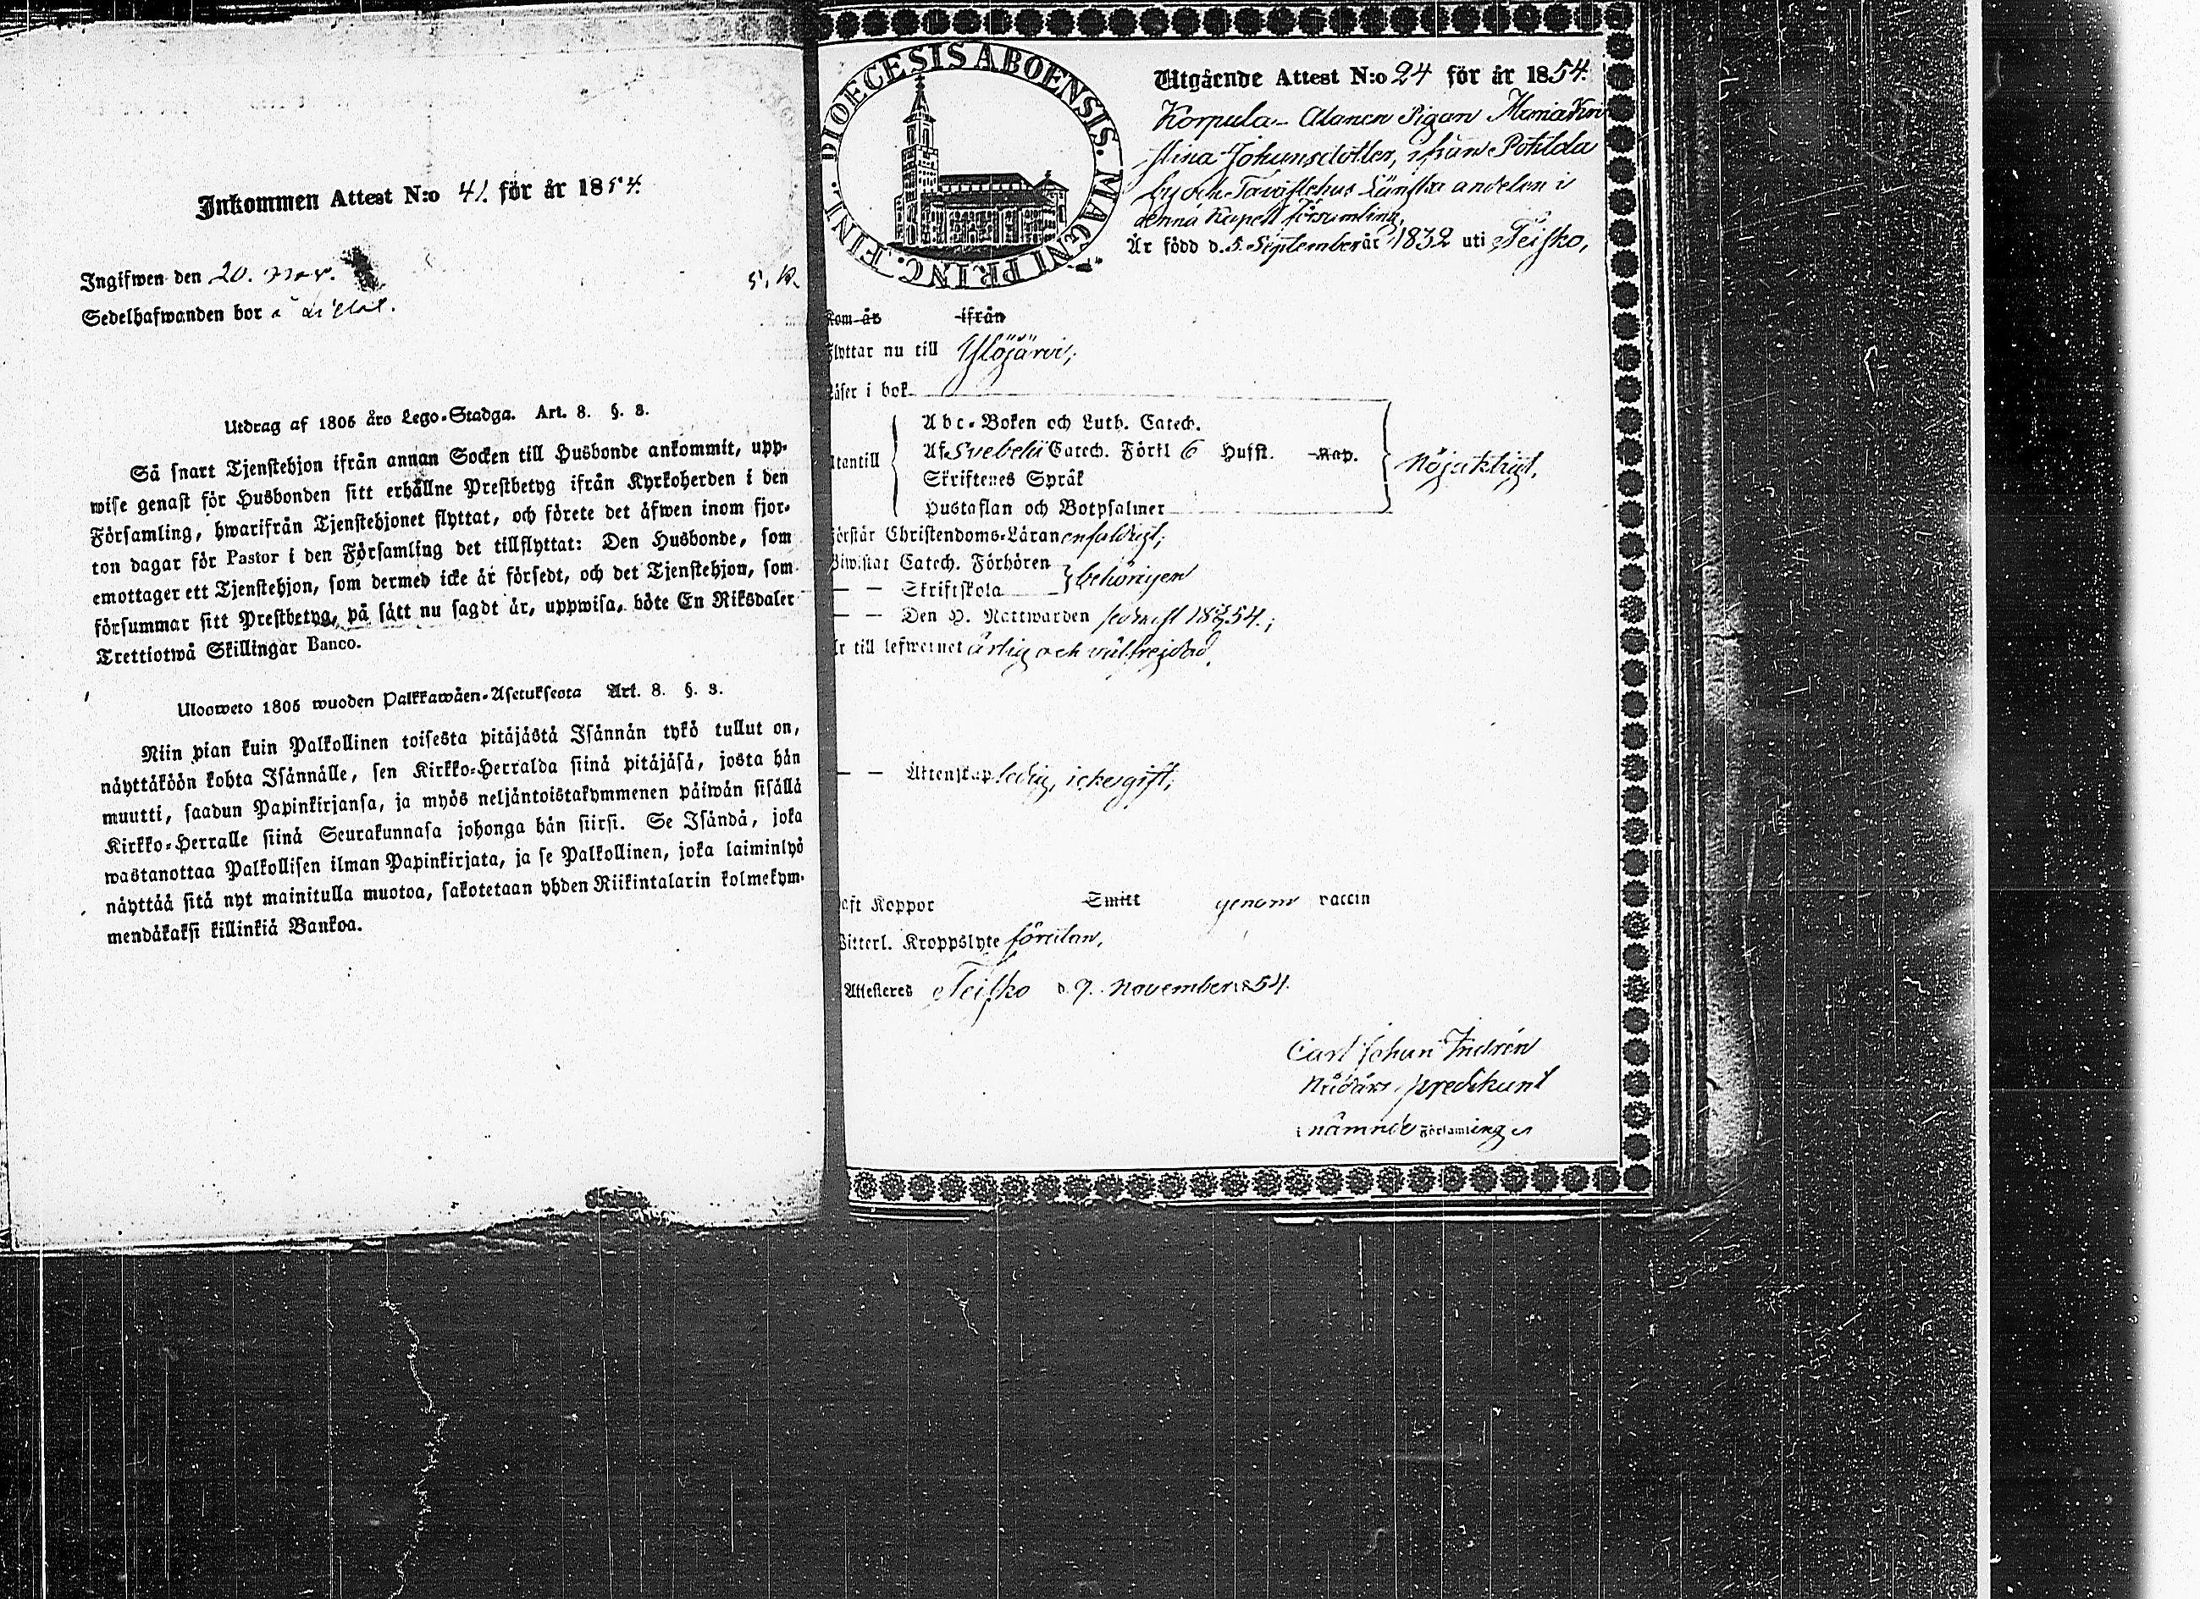 Inkommen Attest N:o 41. för år 1854.
Ingifwen den 20. nov.
5. K.
Sedelhafwanden bor å
Utdrag af 1805 års Lego-Stadga. Art. 8. §. 3.
Så snart Tjenstehjon ifrån annan Socken till Husbonde ankommit, upp-
wise genast för Husbonden sitt erhållne Prestbetyg ifrån Kyrkoherden i den
Församling, hwarifrån Tjenstehjonet flyttat, och förete det äfwen inom fjor-
ton dagar för Pastor i den Församling det tillflyttat: Den Husbonde, som
emottager ett Tjenstehjon, som dermed icke är försedt, och det Tjenstehjon, som
försummar sitt Prestbetyg, på sätt nu sagdt är, uppwisa, böte En Riksdaler
Trettiotwå Skillingar Banco.
Uloosweto 1805 wuoden Palkkawäen-Asetuksesta Art. 8. §. 3.
Niin pian kuin Palkollinen toisesta pitäjästä Isännän tykö tullut on,
näyttäköön kohta Isännälle, sen Kirkko-Herralda siinä pitäjäsä, josta hän
muutti, saadun Papinkirjansa, ja myös neljäntoistakymmenen päiwän sisällä
Kirkko-Herralle siinä Seurakunnasa johonga hän siirsi. Se Isändä, joka
wastanottaa Palkollisen ilman Papinkirjata, ja se Palkollinen, joka laiminlyö
näyttää sitä nyt mainitulla muotoa, sakotetaan yhden Riikintalarin kolmekym-
mendäkaksi killinkiä Bankoa.
DIOECESIS ABOENSIS. MAGNI PRINC. FINL.
Utgående Attest N:o 24 för år 1854.
Korpula-Alanen Pigan Maria Kri
stina Johansdotter, ifrån Pohtola
by och Tavastehus Länska andelen i
denna Kapell församling,
Är född d. 5. September år 1832 uti Teisko,
Kom år ifrån
Flyttar nu till Ylöjärvi;
Läser i bok
Abc-Boken och Luth. Catech.
Utantill Af Svebelii Catech. Förkl 6 Hufst. Kap. nöjaktigt,
Skriftenes Språk
Hustaflan och Botpsalmer
Förstår Christendoms-Läran enfaldigt;
Biwistat Catech. Förhören
— — Skriftskola behörigen
— — Den H. Nattwarden sednast 18 54.;
Är till lefwernet ärlig och välfrejdad,
— — Äktenskap ledig, icke gift;
Haft Koppor Smitt genom vaccin
Witterl. Kroppslyte förutan,
Attesteres Teisko d. 9. November 1854.
Carl Johan Indrén
Nådårs predikant
i nämnde Församling